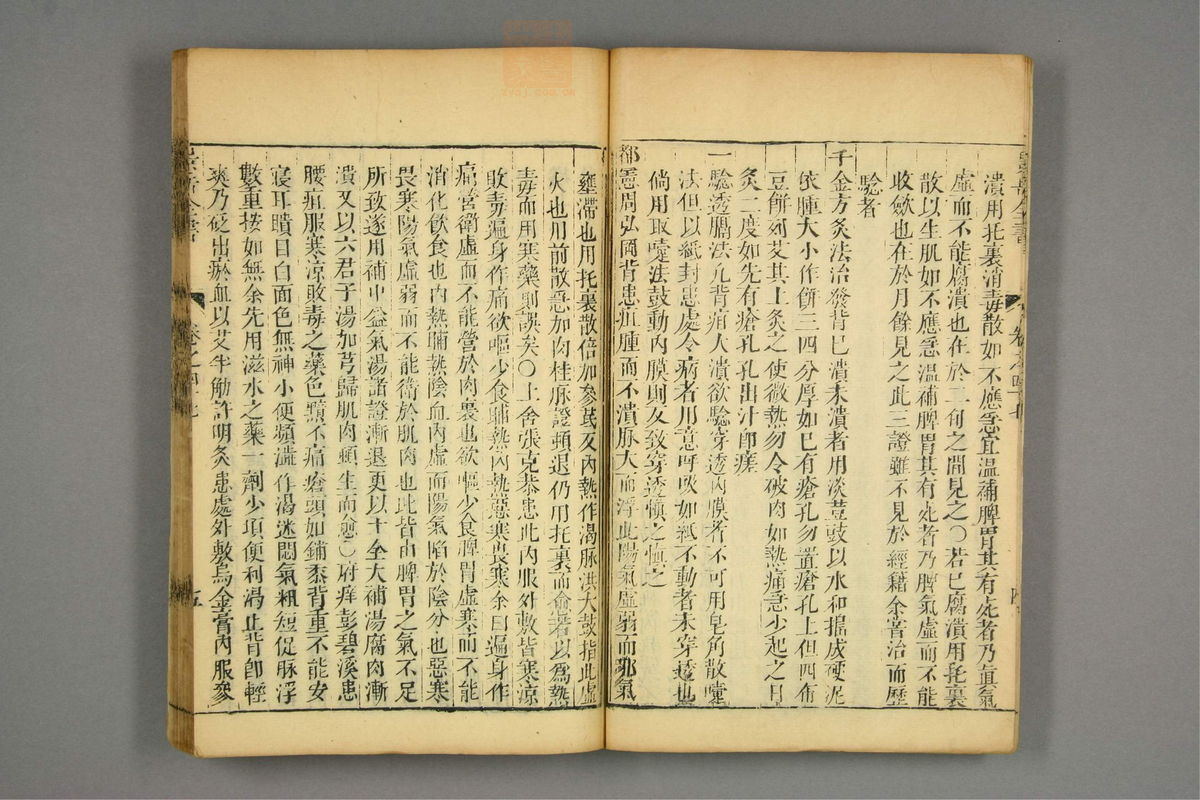 潰用托裏消毒散如不應急宜溫補脾胃其有死者乃眞氣
虛而不能腐潰也在於二旬之間見之○若已腐潰用托裏
散以生肌如不應急溫補脾胃其有死者乃脾氣虛而不能
收斂也在於月餘見之此三證雖不見於經籍余嘗治而歷
驗者
千金方灸法治發背已潰未潰者用淡荳豉以水和搗成硬泥
依腫大小作餅三四分厚如已有瘡孔勿置瘡孔上但四布
豆餅列艾其上灸之使微熱勿令破肉如熱痛急少起之日
灸二度如先有瘡孔孔出汁即瘥
一驗透膈法凡背痛大潰欲驗穿透內膜者不可用皂角散嚏
法但以紙封患處令病者用意呼吸如紙不動者未穿透也
倘用取嚏法鼓動內膜則反致穿透愼之愼之
都憲周弘岡背患疽腫而不潰脉大而浮此陽氣虛弱而邪氣
壅滯也用托裏散倍加參芪反內熱作渴脉洪大鼓指此虛
火也用前散急加肉桂脉證頓退仍用托裏而愈若以爲熱
毒而用寒藥則誤矣○上舍張克恭患此內服外敷皆寒涼
敗毒遍身作痛欲嘔少食晡熱內熱惡寒畏寒余曰遍身作
痛營衛虛而不能營於肉裏也欲嘔少食脾胃虛寒而不能
消化飲食也內熱晡熱陰血內虛而陽氣陷於陰分也惡寒
畏寒陽氣虛弱而不能衛於肌肉也此皆由脾胃之氣不足
所致遂用補中益氣湯諸證漸退更以十全大補湯腐肉漸
潰又以六君子湯加芎歸肌肉頓生而愈○府庠彭碧溪患
腰疽服寒涼敗毒之藥色黯不痛瘡頭如鋪黍背重不能安
寢耳聵目白面色無神小便頻澁作渴迷悶氣粗短促脉浮
數重按如無余先用滋水之藥一劑少項便利渴止背即輕
爽乃砭出瘀血以艾半觔許明灸患處外敷烏金膏內服參